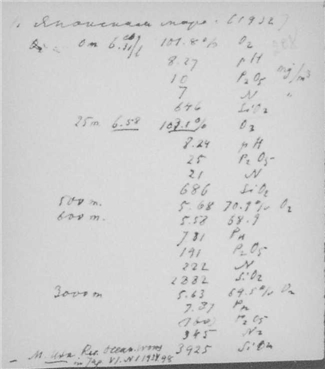 Японском море. (1932)
0m 6.30 101.8% O₂
8.27 pH
10 P₂O₅ mg/m³
7 N "
646 SiO₂
25m 6.58 103.1% O₂
8.24 pH
25 P₂O₅
21 N
686 SiO₂
500 m. 5.68 70.9% O₂
600 m. 5.58 68.9
781 PH
191 P₂O₅
222 N
2882 SiO₂
3000m 5.63 69.5% O₂
7.87 PH
P₂O₅
385 N₂
M. Uda Rec. Ocean. works 3925 SiO₂
in Jap. VI. N1 1934 98